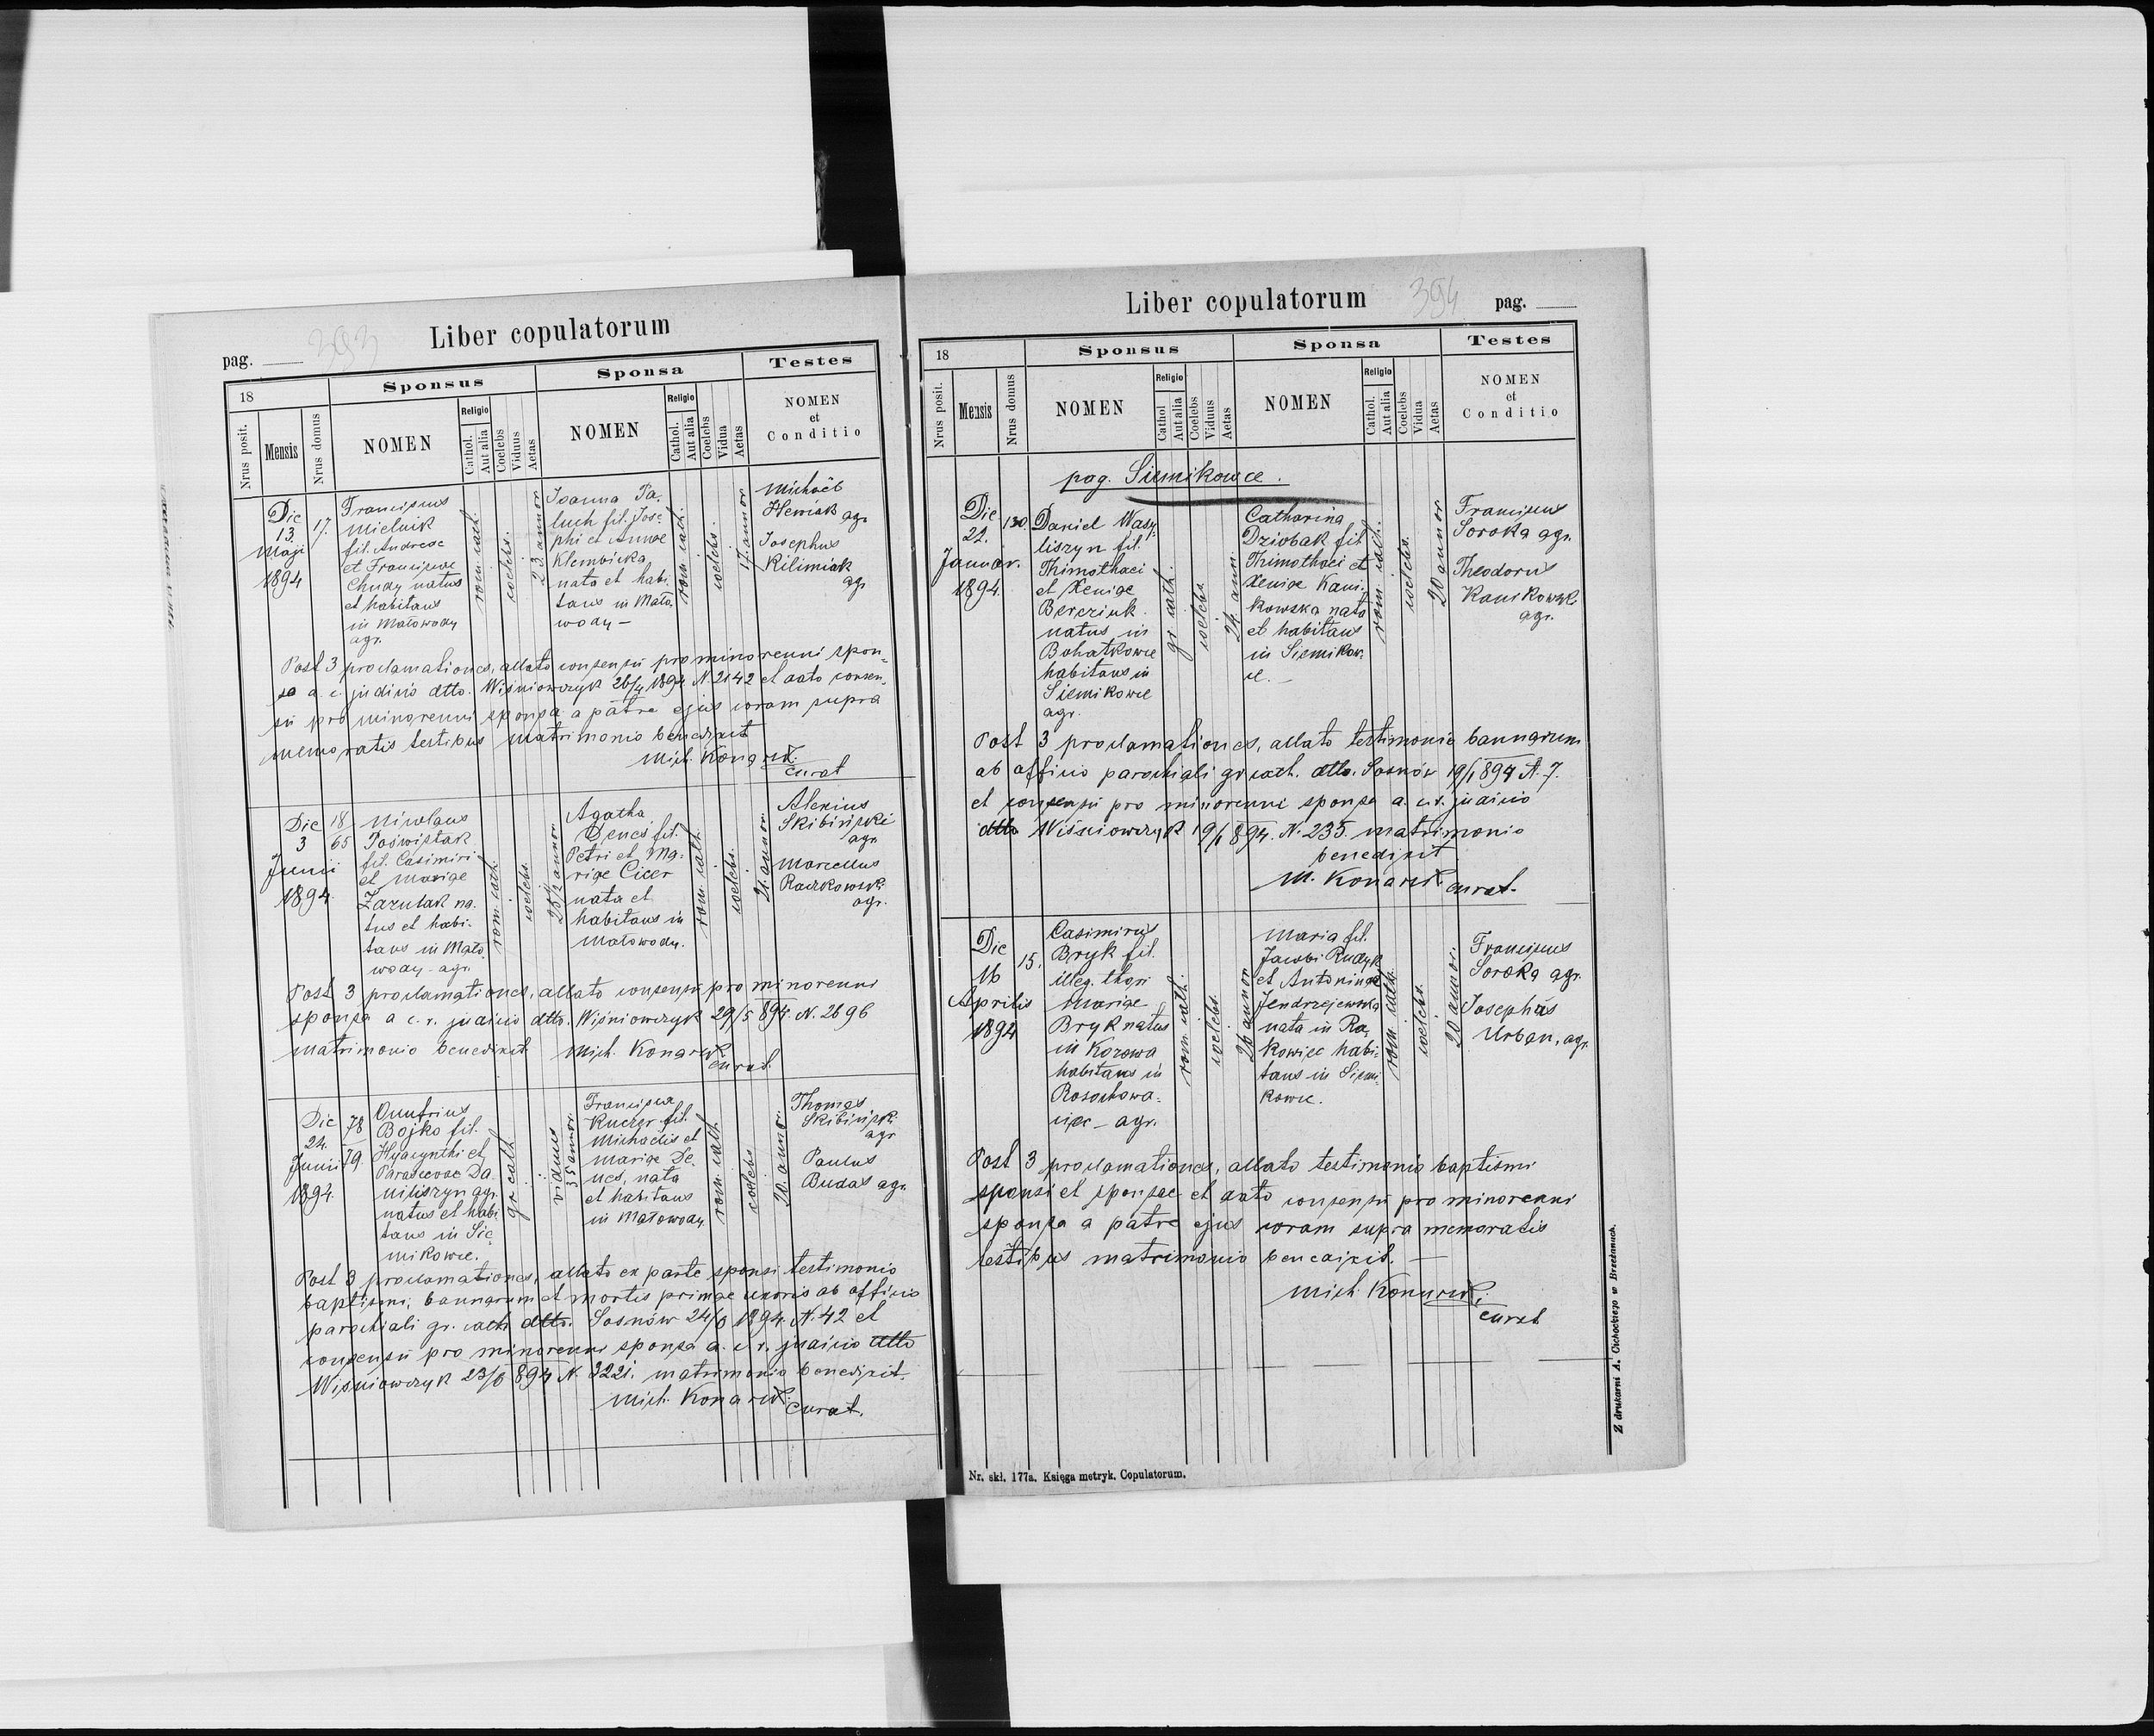 Liber copulatorum
pag. 393
18
Sponsus
Sponsa
Testes
Nrus posit.
Mensis
Nrus domus
NOMEN
Religio
Cathol.
Aut alia
Coelebs
Viduus
Aetas
NOMEN
Religio
Cathol.
Aut alia
Coelebs
Vidua
Aetas
NOMEN
et
Conditio
Die
13.
Maji
1894
17.
Franciscus
Mielnik
fil. Andreae
et Franciscae
Chudy natus
et habitans
in Małowody
agr.
rom. cath.
coelebs.
23 annor
Joanna Pa-
luch fil. Jos-
phi et Annae
Klembicka
nata et habi-
tans in Mało-
wody —
rom. cath.
coelebs.
17 annor
Michaël
Heniak agr
Josephus
Kilimiak
agr
Post 3 proclamationes, allato consensu pro minorenni spon-
sa a. c. judicio dtto. Wiśniowczyk 26/4 1894 N. 2142 et dato consen-
su pro minorenni sponsa a patre ejus coram supra
memoratis testibus matrimonio benedixit
Mich. Konarski
curat
Die
3
Junii
1894
18
65
Nicolaus
Poświstak
fil. Casimiri
et Mariae
Zarulak na-
tus et habi-
tans in Mało
wody - agr.
rom. cath.
coelebs.
23 1/2 annor
Agatha
Denes fil.
Petri et Ma-
riae Cicer
nata et
habitans in
Małowody.
rom. cath.
coelebs.
21 annor
Alexius
Skibiński
agr
Marcellus
Raczkowsk.
agr.
Post 3 proclamationes, allato consensu pro minorenni
sponsa a c. r. judicio dtto. Wiśniowczyk 29/5 894. N. 2696
matrimonio benedixit Mich. Konarski
curat.
Die
24.
Junii
1894.
78
79.
Dmitrius
Bojko fil.
Hyacynthi et
Parascevae Da-
niliszyn agr.
natus et habi
tans in Sie-
mikowce.
gr cath
viduus
35 annor.
Francisca
Kuczer fil.
Michaelis et
Mariae De-
nes, nata
et habitans
in Małowody
rom. cath.
coelebs
20. annor.
Thomas
Skibińsk.
agr
Paulus
Budas agr.
Post 3 proclamationes, allato ex parte sponsi testimonio
baptismi, bannorum et mortis primae uxoris ab officio
parochiali gr. cath. dtto. Sosnów 24/6 1894 N. 42 et
consensu pro minorenni sponsa a. c. r. judicio dtto
Wiśniowczyk 23/6 894 N. 3221. matrimonio benedixit.
Mich. Konarski
curat.
Liber copulatorum
394 pag.
18
Sponsus
Sponsa
Testes
Nrus posit.
Mensis
Nrus domus
NOMEN
Religio
Cathol
Aut alia
Coelebs
Viduus
Aetas
NOMEN
Religio
Cathol.
Aut alia
Coelebs
Vidua
Aetas
NOMEN
et
Conditio
pag. Siemikowce.
Die
22.
Januar.
1894.
130
Daniel Wasy-
liszyn fil.
Thimothaei
et Xeniae
Bereziuk
natus in
Bohatkowce
habitans in
Siemikowce
agr.
gr cath.
coelebs
24 ann.
Catharina
Dziobak fil
Thimothaei et
Xeniae Kani-
kowska nata
et habitans
in Siemikow-
ce. —
rom cath.
coelebs.
20 annor
Franciscus
Soroka agr.
Theodorus
Kanikowski
agr.
Post 3 proclamationes, allato testimonio bannorum
ab officio parochiali gr cath. dtto. Sosnów 19/1 894 N. 7.
et consensu pro minorenni sponsa a. c. r. judicio
dtto Wiśniowczyk 19/1 894. N. 235. matrimonio
benedixit
M. Konarski curat.
Die
16
Aprilis
1894
15.
Casimirus
Bryk fil.
illeg. thori
Mariae
Bryk natus
in Kozowa
habitans in
Rosochowa-
ciec - agr.
rom cath.
coelebs.
26 annor
Maria fil.
Jacobi Rudyk
et Antoninae
Jendrzejewska
nata in Ra-
kowiec habi-
tans in Siemi-
kowce.
rom cath.
coelebs.
20 annor.
Franciscus
Soroka agr.
Josephus
Urban, agr.
Post 3 proclamationes, allato testimonio baptismi
sponsi et sponsae et dato consensu pro minorenni
sponsa a patre ejus coram supra memoratis
testibus matrimonio benedixit. —
Mich. Konarski
curat
Nr. skł. 177a. Księga metryk. Copulatorum.
Z drukarni A. Cichockiego w Brzeżanach.